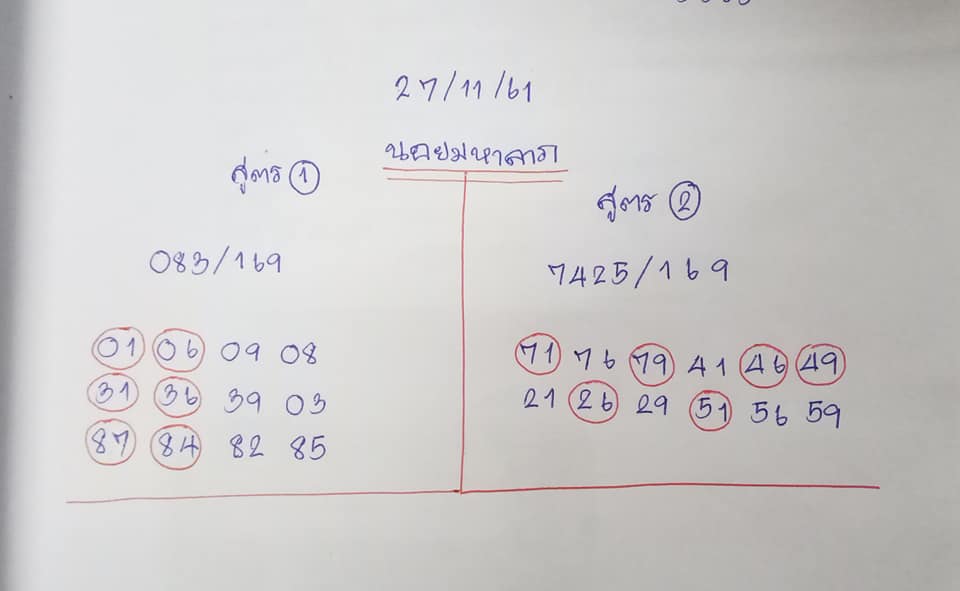 27/11/61
ฮานอยมหาลาภ
สูตร 1
083/169
01 06 09 08
31 36 39 03
87 84 82 85
สูตร 2
7425/169
71 76 79 41 46 49
21 26 29 51 56 59